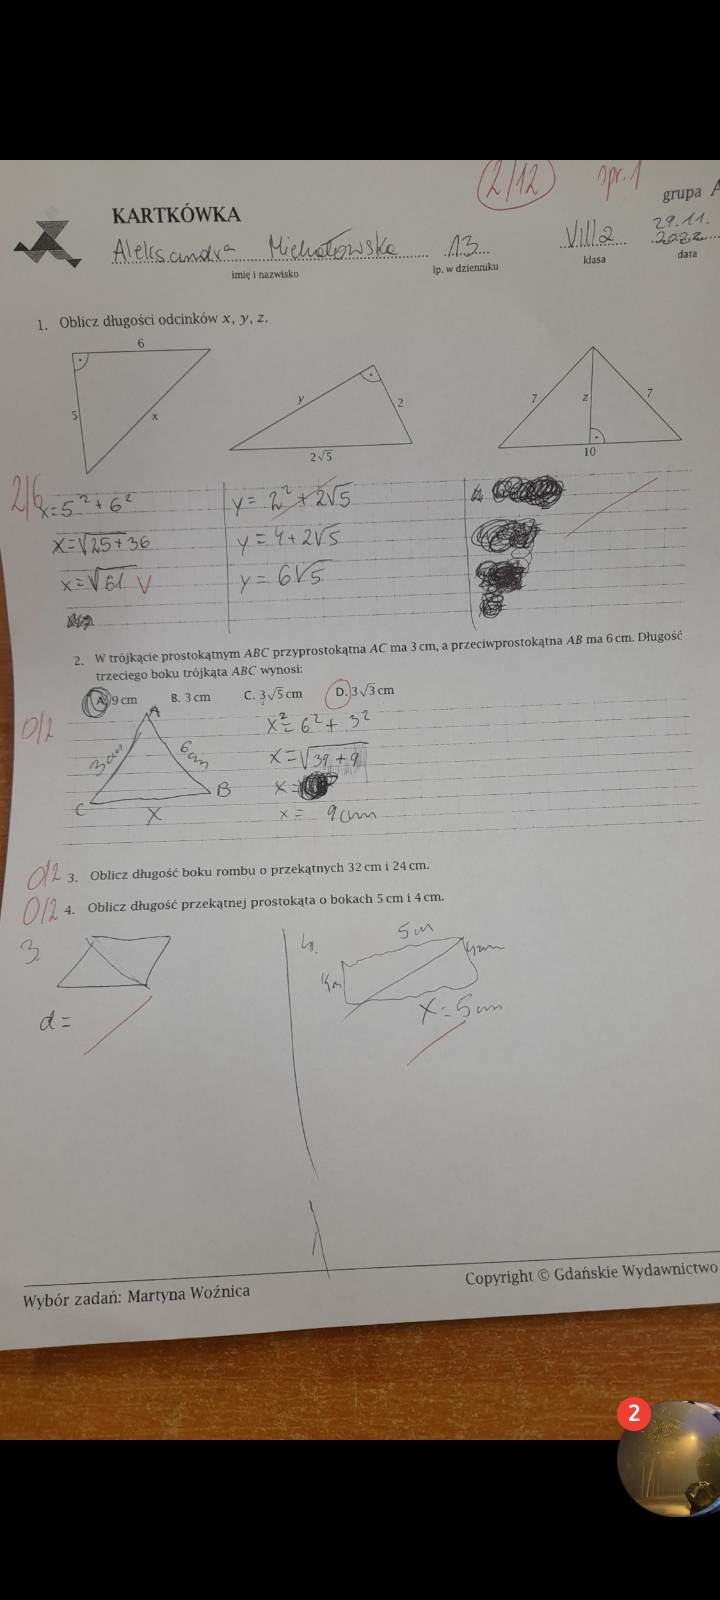 2/12 spr. 1
grupa A
KARTKÓWKA
Aleksandra Michałowska 13 VIIIa 29.11.2022
imię i nazwisko lp. w dzienniku klasa data
1. Oblicz długości odcinków x, y, z.
6
5 x
y 2
2√5
7 z 7
10
2/6
x=5²+6²
x=√25+36
x=√61 V
y= 2²+2√5
y= 4+2√5
y= 6√5
2. W trójkącie prostokątnym ABC przyprostokątna AC ma 3 cm, a przeciwprostokątna AB ma 6 cm. Długość
trzeciego boku trójkąta ABC wynosi:
A. 9 cm B. 3 cm C. 3√5 cm D. 3√3 cm
0/2
A
3cm 6cm
C B
X
x²=6²+3²
x=√39+9
x=
x= 9cm
0/2 3. Oblicz długość boku rombu o przekątnych 32 cm i 24 cm.
0/2 4. Oblicz długość przekątnej prostokąta o bokach 5 cm i 4 cm.
3.
d=
4.
5cm
4cm
X=5cm
Wybór zadań: Martyna Woźnica
Copyright © Gdańskie Wydawnictwo
2